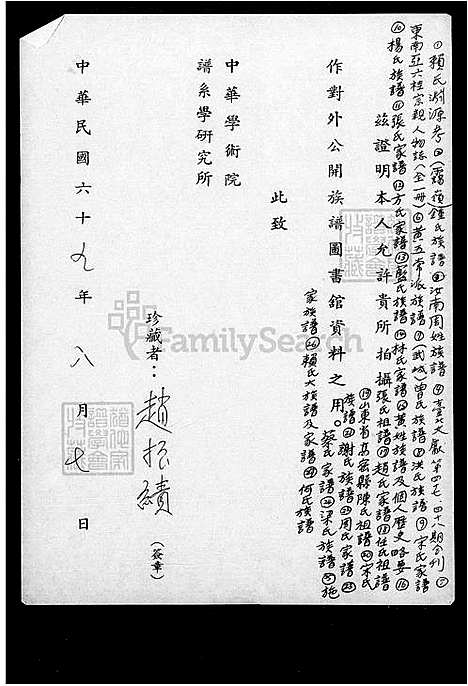 ①賴氏淵源考②(霧嶺)鍾氏族譜③汝南周姓族譜④臺北文獻第四七、四十八期合刊⑤
東南亞六桂宗親人物誌(全一冊)⑥黃五常派族譜⑦武城曾氏族譜⑧洪氏族譜⑨宋氏家譜
⑩楊氏族譜⑪張氏家譜⑫方氏家譜⑬藍氏族譜⑭林氏家譜⑮黃姓族譜及個人歷史略要⑯
茲證明本人允許貴所拍攝張氏祖譜⑰趙氏家譜⑱任氏祖譜
⑲山東省高密縣陳氏祖譜⑳宋氏
作對外公開族譜圖書舘資料之用。
族譜㉑謝氏族譜㉒周氏家譜㉓
蔡氏家譜㉔梁氏族譜㉕施
家族譜㉖賴氏大族譜及家譜㉗何氏族譜
此致
中華學術院
譜系學研究所
珍藏者:趙振績(簽章)
中華民國六十九年八月七日
FamilySearch